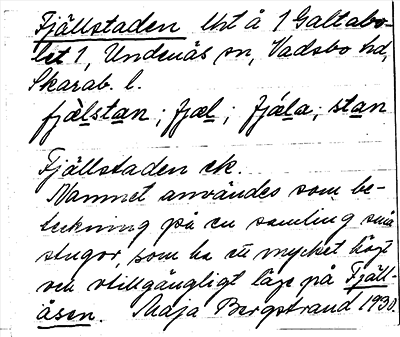 Fjällstaden Utt å 1 Galtabo-
let 1, Undenäs sn, Vadsbo hd,
Skarab. l.
fjälstan; fjæl; fjäla; stan
Fjällstaden ek.
Namnet användes som be-
teckning på en samling små
stugor, som ha ett mycket högt
och otillgängligt läge på Fjäll-
åsen. Maja Bergstrand 1930.